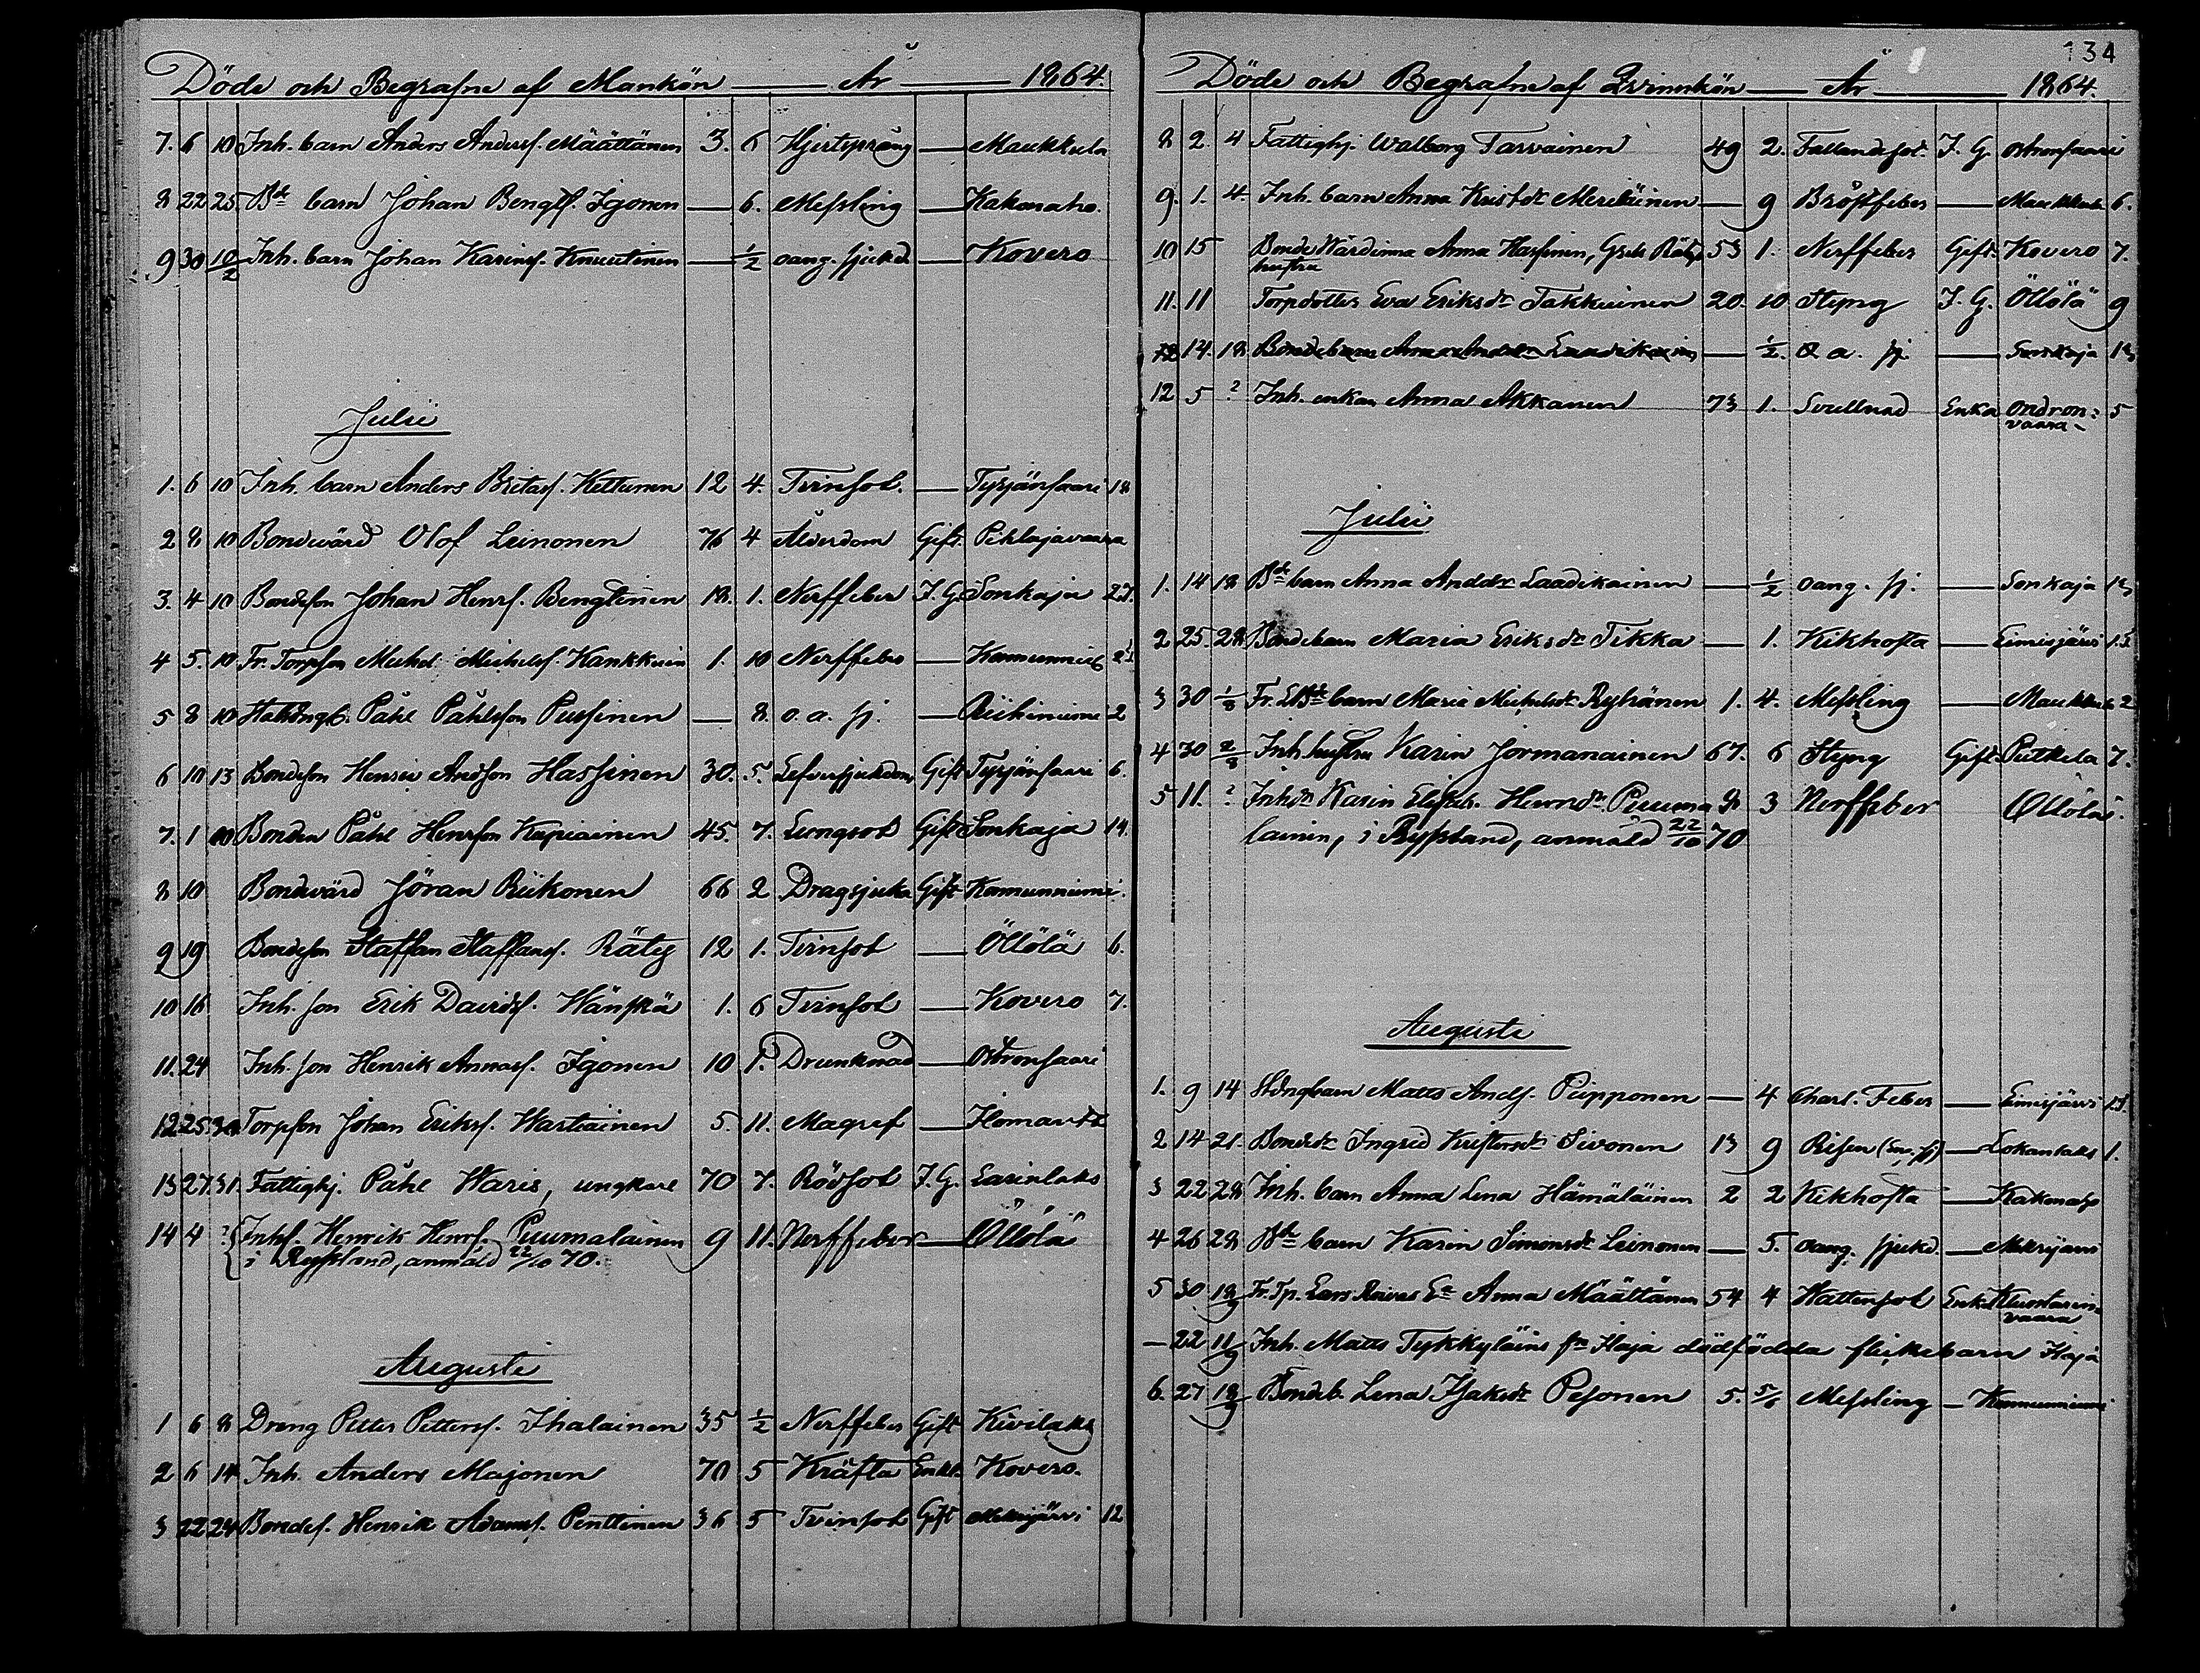 Döde och Begrafne af Mankön År 1864.
7. 6 10 Inh. barn Anders Anderss. Määttänen 3. 6 Hjertsprång — Maukkula
8 22 25 Bde barn Johan Bengtss. Igonen — 6. Messling — Kakonaho.
9 30 10/2 Inh. barn Johan Karins. Knuutinen — 1/2 oang. sjukd — Kovero
Julii
1. 6 10 Inh. barn Anders Britas. Kettunen 12 4. Tvinsot. — Tyrjänsaari 18
2 8 10 Bondvärd Olof Leinonen 76 4 Ålderdom Gift. Pehlajavaara
3. 4 10 Bondeson Johan Henrs. Bengtinen 18. 1. Nerffeber I. G. Sonkaja 27.
4 5. 10 Fr. Torpson Michel Michelss. Kankkuin 1. 10 Nerffeber —
5 8 10 Påhl Påhlsson Pussinen — 8. o. a. sj. — 2
6 10 13 Bondeson Henric Andsson Hassinen 30. 5. Lefversjukdom Gift Tyrjänsaari 6.
7. 1 10 Bonden Påhl Henrsson Kapiainen 45. 7. Lungsot Gift Sonkaja 14.
8 10 Bondvärd Jöran Riikonen 66 2 Dragsjuka Gift Kamunniemi.
9 19 Bondeson Staffan Staffans. Räty 12 1. Tvinsot — Öllölä 6.
10 16 Inh. son Erik Davids. Hänskä 1. 6 Tvinsot — Kovero 7.
11. 24 Inh. son Henrik Annas. Igonen 10 1. Drunknad — Ostronsaari
12 25 30 Torpson Johan Eriks. Wartiainen 5. 11. Magref — Ilomants
13 27. 31. Fattighj. Påhl Waris, ungkarl 70 7. Rödsot I. G. Lasinlaks
14 4 ? Inhs. Henrik Henrs. Puumalainen 9 11. Nerffeber — Öllölä
i Ryssland, anmäld 22/10 70.
Augusti
1 6 8 Dreng Petter Petterss. Ihalainen 35 1/2 Nerffeber Gift Kivilaks
2 6 14 Inh. Anders Majonen 70 5 Kräfta Enkl. Kovero.
3 22 24 Bondes. Henrik Adams. Penttinen 36 5 Tvinsot Gift Mekrijärvi 12
134
Döde och Begrafne af Qvinnkön År 1864.
8 2. 4 Fattighj. Walborg Tarvainen 49 2. Fallandesot. I. G. Ostronsaari
9. 1. 4. Inh. barn Anna Kristsdr Meriläinen — 9 Bröstfeber — Maukkula 6.
10 15 Bonde Wärdinna Anna Hassinen, Räty 53 1. Nerffeber Gift. Kovero 7.
hustru
11. 11 Torpdotter Eva Eriksdr Takkuinen 20. 10 Styng I. G. Öllölä 9
12 14. 18 Bondebarn Anna Andsdr Laadikainen — 1/2. o a. sj. — Sonkaja 13
12 5 ? Inh. enkan Anna Akkanen 73 1. Svullnad Enka Ondron= 5
vaara
Julii
1. 14 18 Bde barn Anna Andsdr Laadikainen — 1/2 oang. sj. — Sonkaja 13
2 25. 28 Bondebarn Maria Eriksdr Tikka — 1. Kikhosta — Eimisjärvi 15
3 30 1/8 Fr. Bde barn Maria Michelsdr Ryhänen 1. 4. Messling — Maukkula 2
4 30 2/8 Inh. hustru Karin Jormanainen 67. 6 Styng Gift. Putkela 7.
5 11. ? Inhdr Karin Elisab. Henrsdr Puuma 8 3 Nerffeber Öllölä.
lainen, i Ryssland, anmäld 22/10 70
Augusti
1. 9 14 barn Matts Ands. Piipponen — 4 Charl. Feber — Eimisjärvi 15
2 14 21. Bondedr Ingrid Kristersdr Sivonen 13 9 Risen — Lokanlaks 1.
3 22 28 Inh. barn Anna Lena Hämäläinen 2 2 Kikhosta — Kakonaho
4 26 28 Bde barn Karin Simonsdr Leinonen — 5. oang. sjukd. — Mekrijärvi
5 30 18/9 Fr. Tp. Lars Roivas Ea Anna Määttänen 54 4 Hattensot Enka Kuuntarin
vaara
— 22 11/9 Inh. Matts Tykkyläins fr Ilaja dödfödda flickebarn Ilaja
6. 27 18/9 Bondeb. Lena Isaksdr Pesonen 5. 5/6 Messling — Kamunniemi